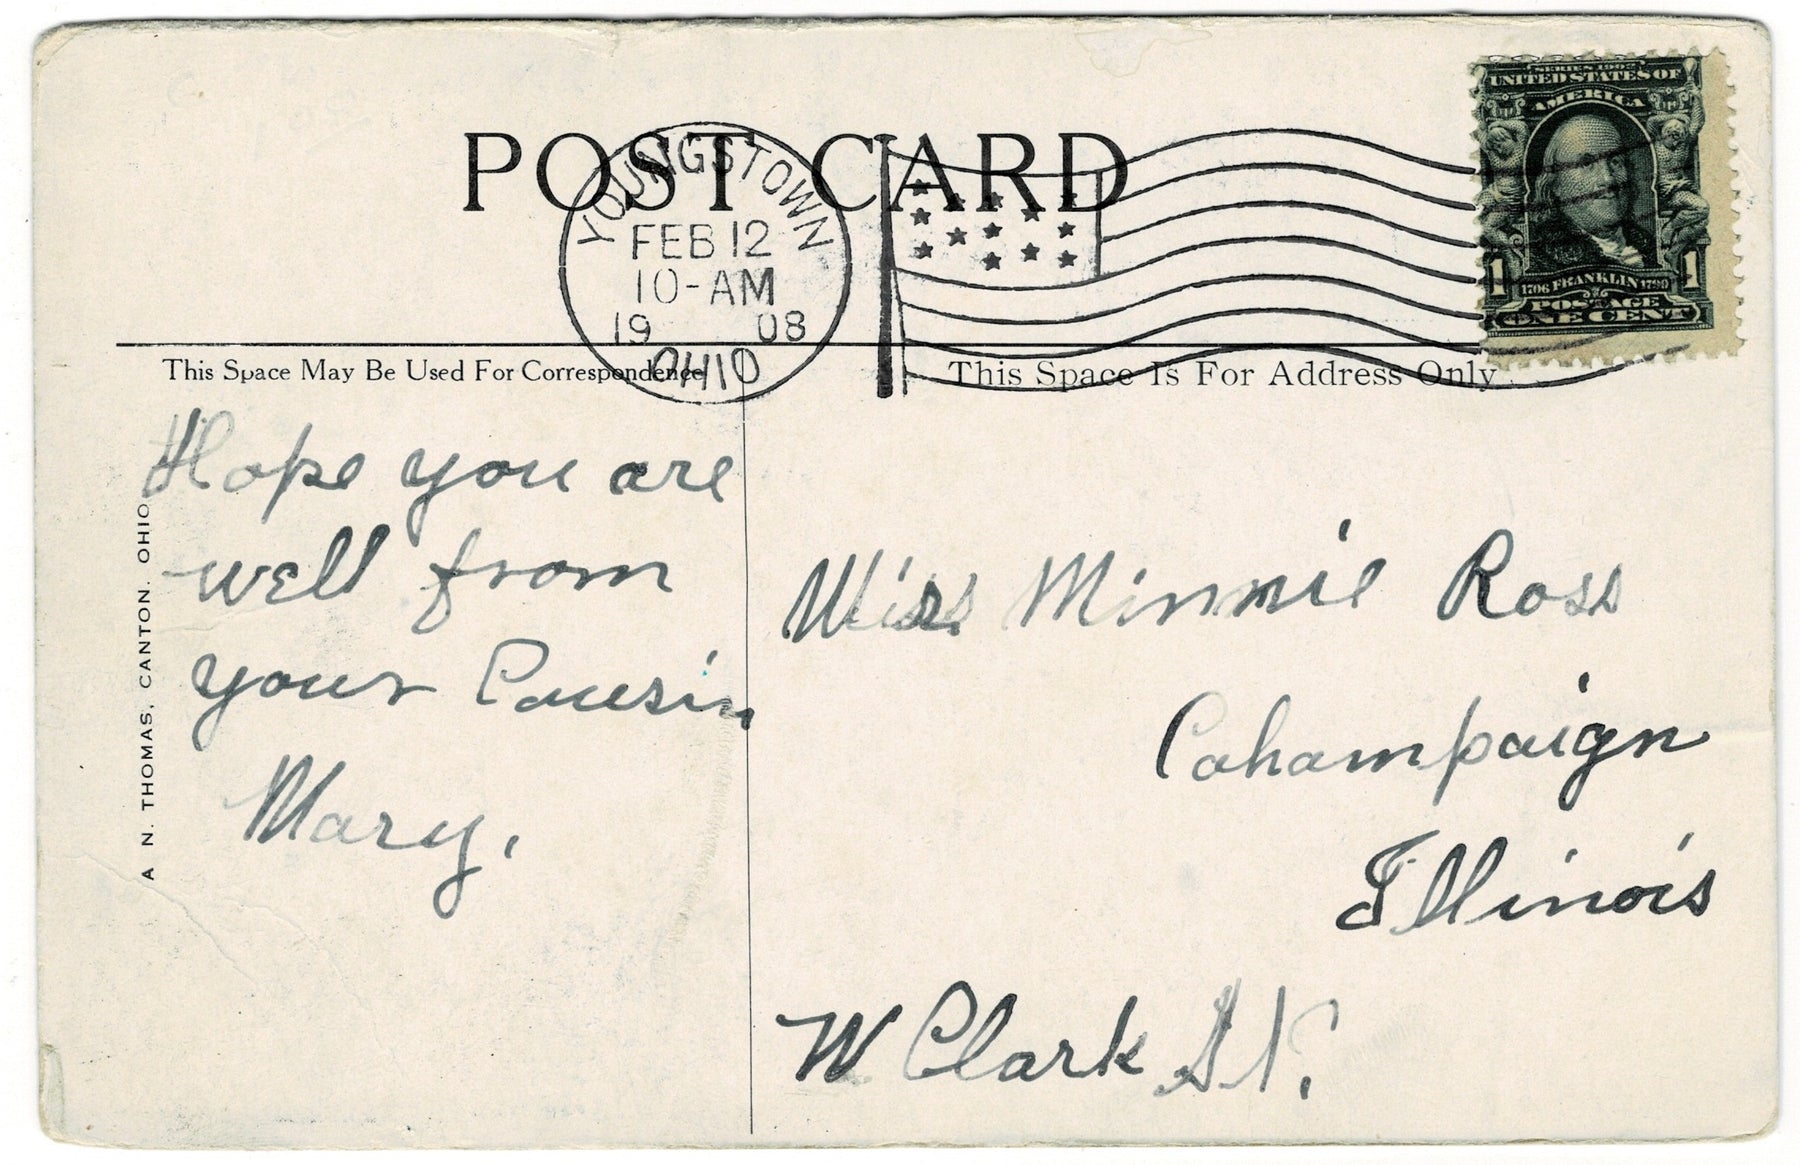 POST CARD
YOUNGSTOWN
FEB 12
10-AM
19 08
OHIO
SERIES 1902
UNITED STATES OF
AMERICA
1 1
1706 FRANKLIN 1790
POSTAGE
ONE CENT
This Space May Be Used For Correspondence
This Space Is For Address Only
A. N. THOMAS, CANTON, OHIO
Hope you are
well from
your Cousin
Mary.
Miss Minnie Ross
Cahampaign
Illinois
W Clark St.